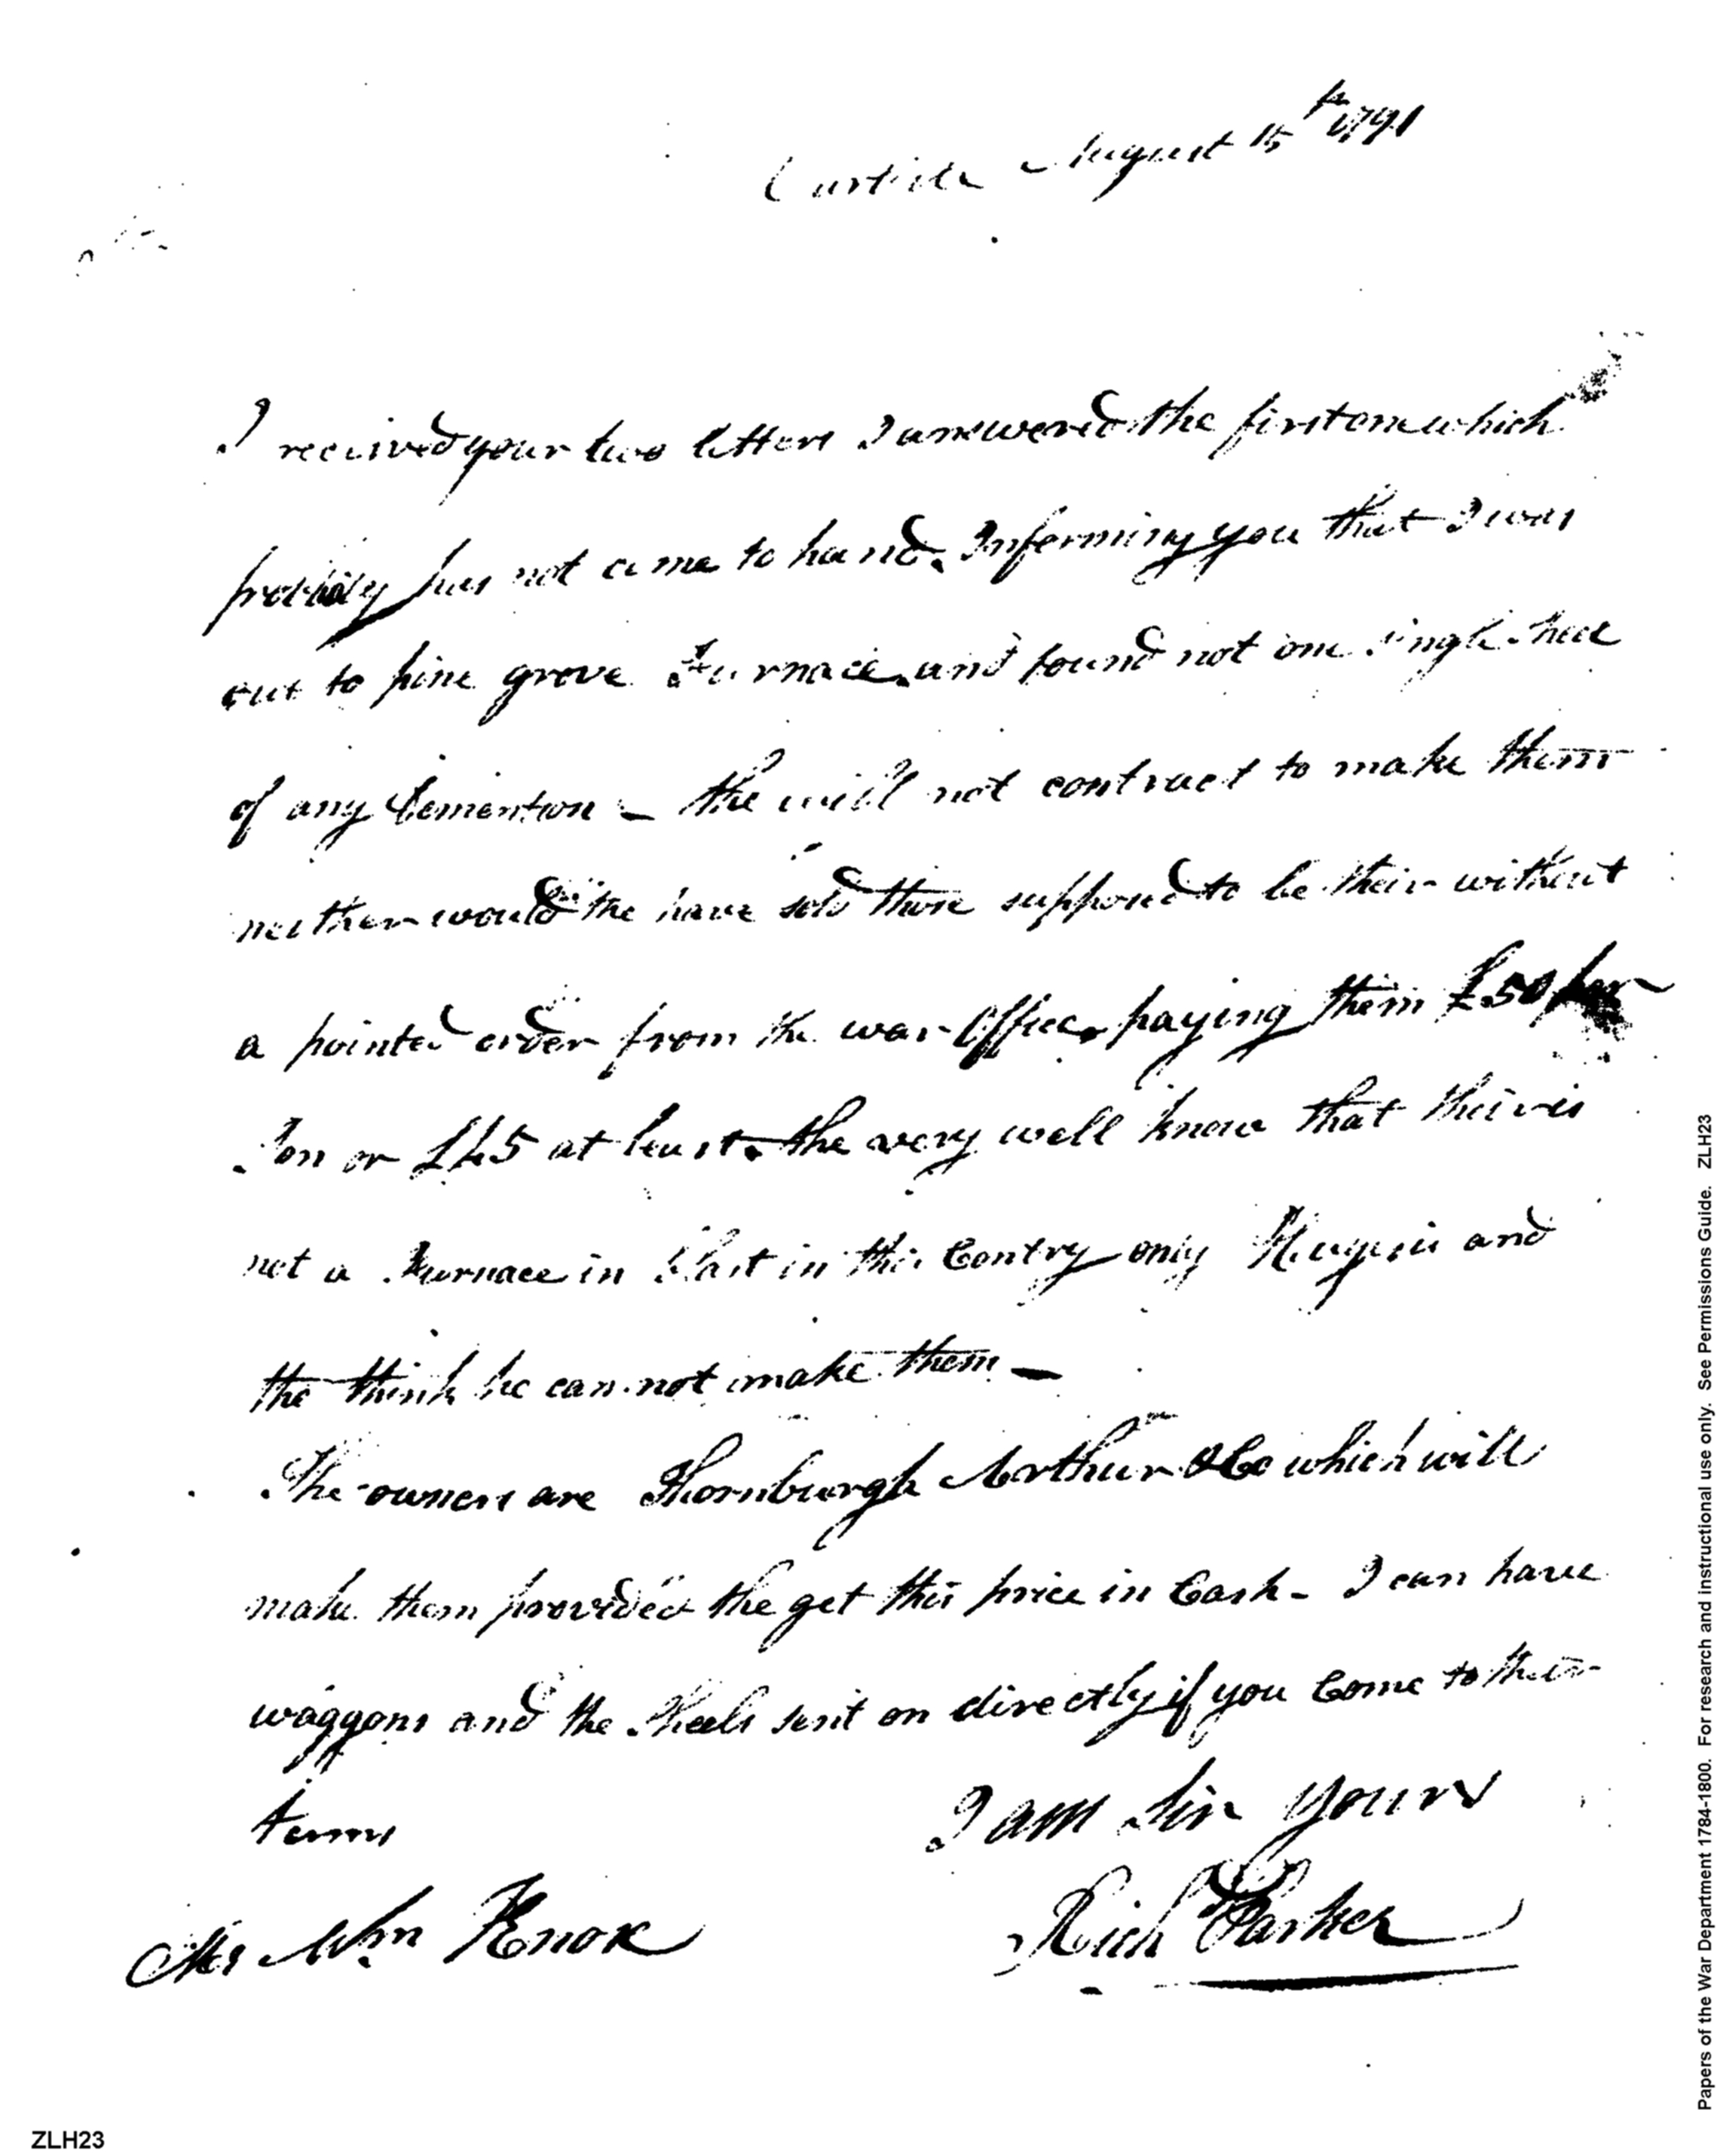 Carlisle August 15th 1791
I received your two letters I answered the first one which
probably has not come to hand. Informing you that I was
out to pine grove Furnace, and found not one single shell
of any Demention – the will not contract to make them
neither would the have sold those supposed to be their without
a pointed order from the war Office, paying them £50 per
Ton or £45 at least. the very well know that their is
not a Furnace in blast in this Contry only and
the think he can not make them –
The owners are Thornburgh Arthur & Co which will
make them provided the get this price in Cash – I can have
waggons and the Shells sent on directly if you Come to their
terms
I am Sir yours
Mr Wm Knox
Rich Parker
ZLH23
Papers of the War Department 1784-1800. For research and instructional use only. See Permissions Guide. ZLH23